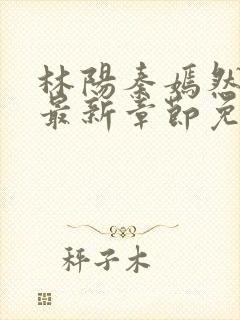 林陽秦嫣然
最新章節免
秤子木